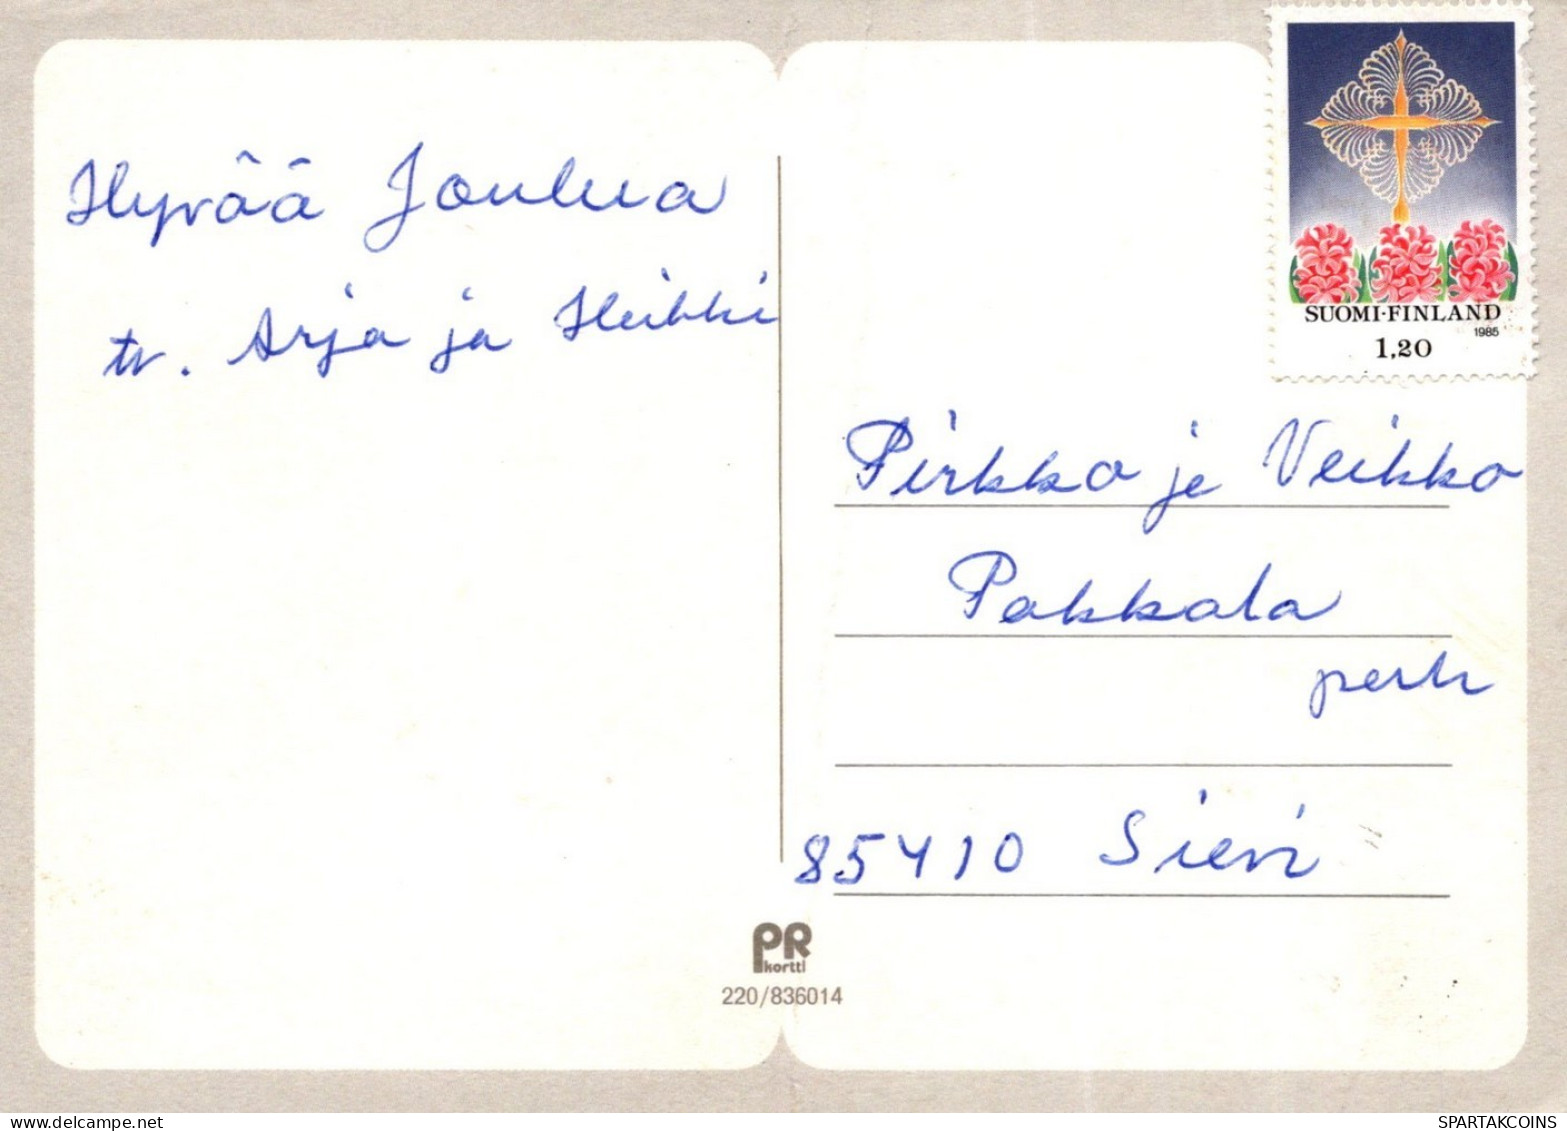 Hyvää Joulua
tv. Arja ja Heikki
SUOMI-FINLAND
1985
1,20
Pirkko ja Veikko
Pakkala
perh
85410 Sievi
PR
kortti
220/836014
SPARTAKCOINS